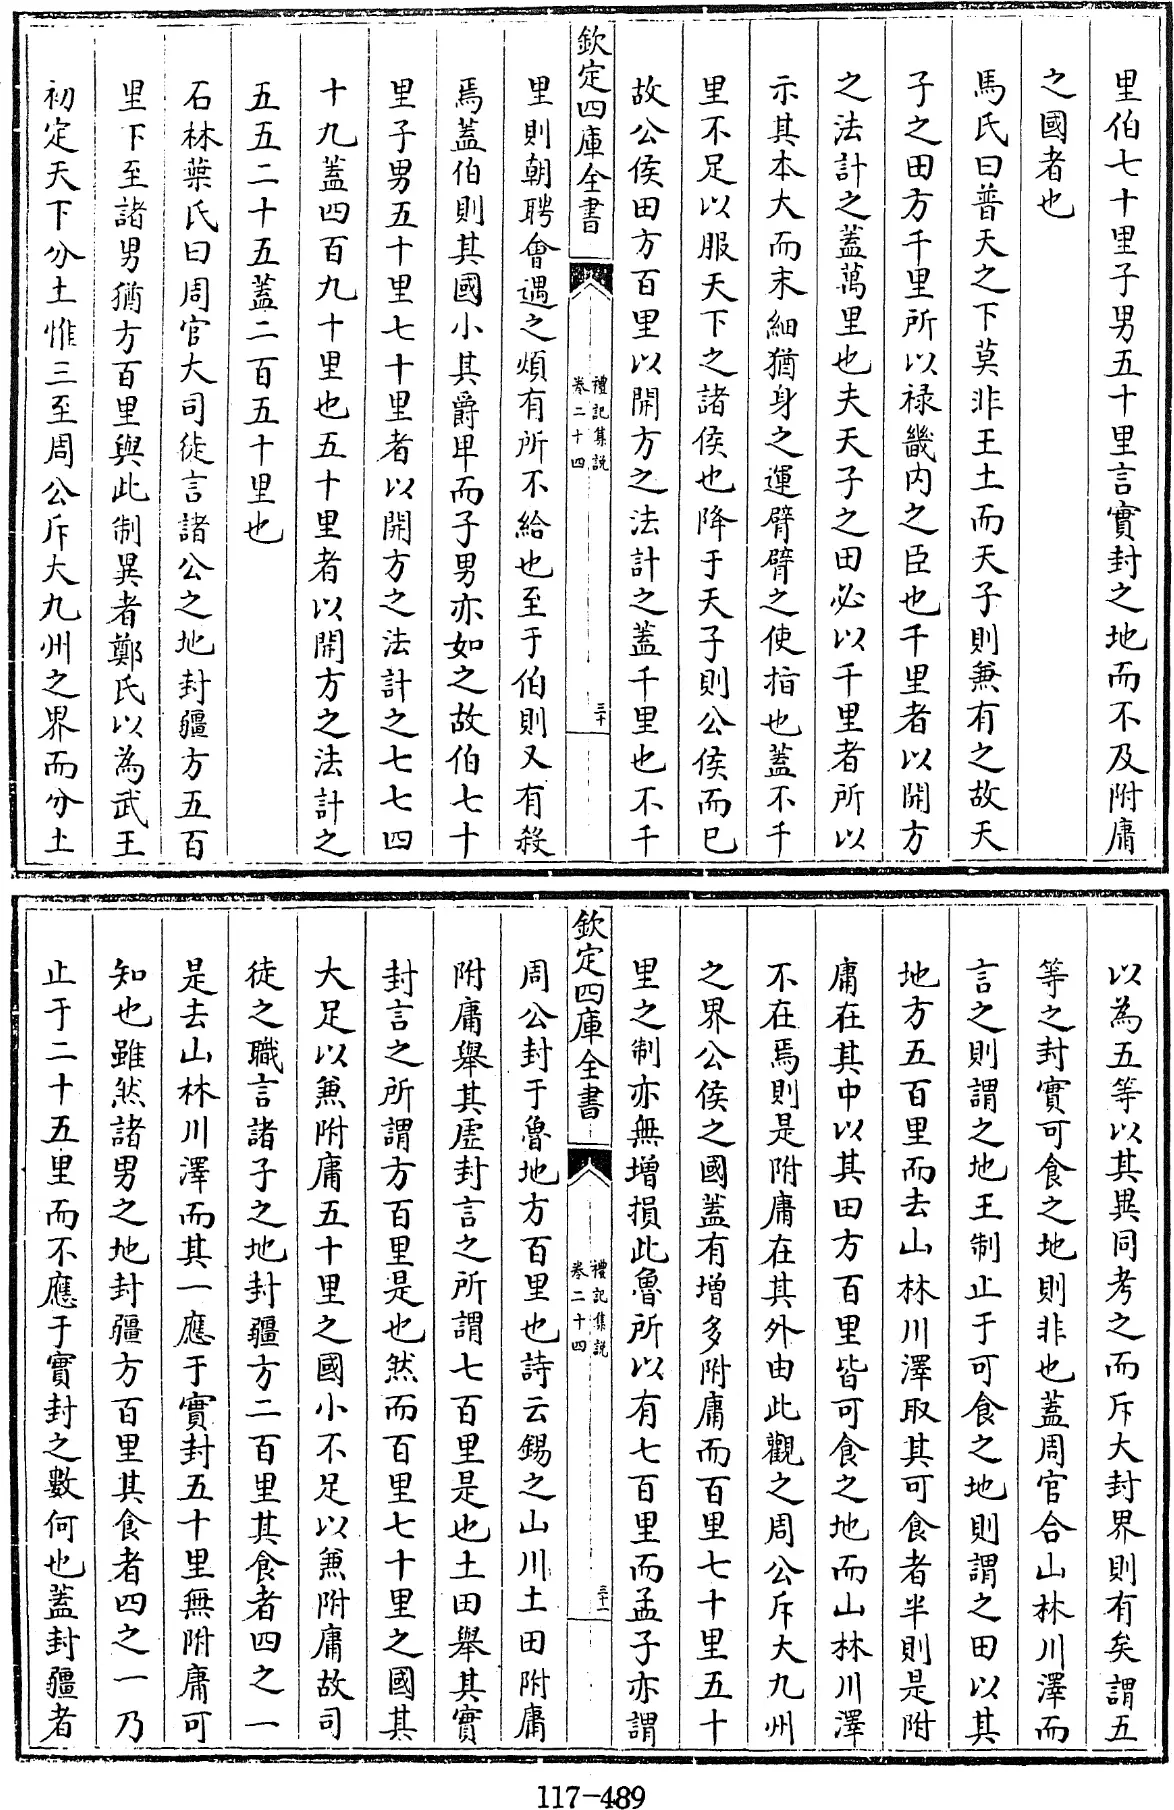 里伯七十里子男五十里言實封之地而不及附庸
之國者也
馬氏曰普天之下莫非王土而天子則兼有之故天
子之田方千里所以祿畿内之臣也千里者以開方
之法計之蓋萬里也夫天子之田必以千里者所以
示其本大而末細猶身之運臂臂之使指也蓋不千
里不足以服天下之諸侯也降于天子則公侯而已
故公侯田方百里以開方之法計之蓋千里也不千
欽定四庫全書
禮記集說
卷二十四
三十
里則朝聘會遇之煩有所不給也至于伯則又有殺
焉蓋伯則其國小其爵卑而子男亦如之故伯七十
里子男五十里七十里者以開方之法計之七七四
十九蓋四百九十里也五十里者以開方之法計之
五五二十五蓋二百五十里也
石林葉氏曰周官大司徒言諸公之地封疆方五百
里下至諸男猶方百里與此制異者鄭氏以為武王
初定天下分土惟三至周公斥大九州之界而分土
以為五等以其異同考之而斥大封界則有矣謂五
等之封實可食之地則非也蓋周官合山林川澤而
言之則謂之地王制止于可食之地則謂之田以其
地方五百里而去山林川澤取其可食者半則是附
庸在其中以其田方百里皆可食之地而山林川澤
不在焉則是附庸在其外由此觀之周公斥大九州
之界公侯之國蓋有增多附庸而百里七十里五十
里之制亦無增損此魯所以有七百里而孟子亦謂
欽定四庫全書
禮記集說
卷二十四
三十一
周公封于魯地方百里也詩云錫之山川土田附庸
附庸舉其虛封言之所謂七百里是也土田舉其實
封言之所謂方百里是也然而百里七十里之國其
大足以兼附庸五十里之國小不足以兼附庸故司
徒之職言諸子之地封疆方二百里其食者四之一
是去山林川澤而其一應于實封五十里無附庸可
知也雖然諸男之地封疆方百里其食者四之一乃
止于二十五里而不應于實封之數何也蓋封疆者
117-489